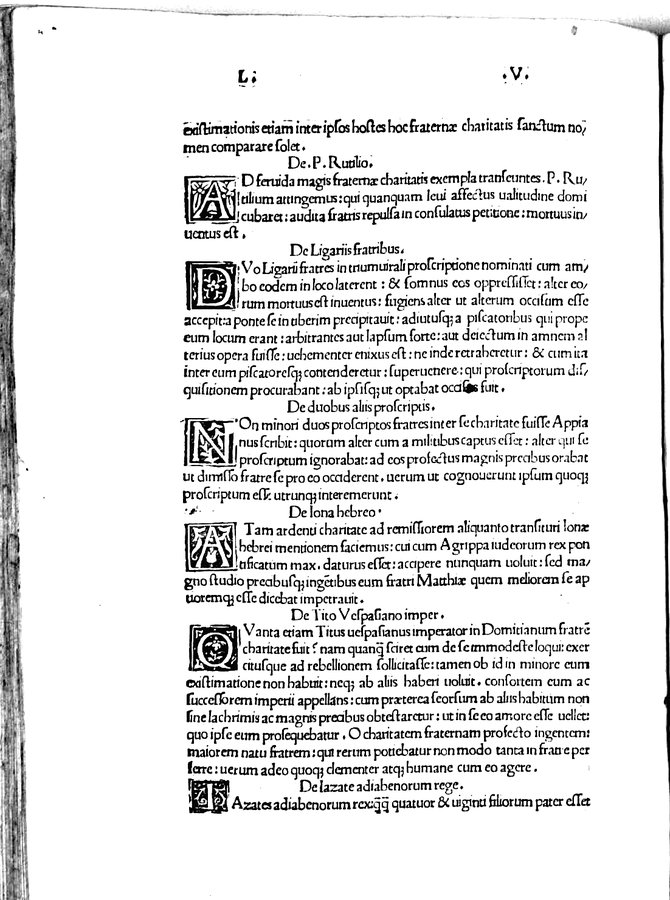 L. .V.
exiſtimationis etiam inter ipſos hoſtes hoc fraternæ charitatis ſanctum no/
men comparare ſolet.
De.P.Rutilio.
AD feruida magis fraternæ charitatis exempla tranſeuntes.P.Ru/
tilium attingemus:qui quanquam leui affectus ualitudine domi
cubaret:audita fratris repulſa in conſulatus petitione:mortuus in/
uentus eſt.
De Ligariis fratribus.
DVo Ligarii fratres in triumuirali proſcriptione nominati cum am/
bo eodem in loco laterent:& ſomnus eos oppreſſiſſet:alter eo/
rum mortuus eſt inuentus:fugiens alter ut alterum occiſum eſſe
accepit:a ponte ſe in tiberim precipitauit:adiutuſq; a piſcatoribus qui prope
eum locum erant:arbitrantes aut lapſum forte:aut deiectum in amnem al
terius opera fuiſſe:uehementer enixus eſt:ne inde retraheretur:& cum ita
inter eum piſcatoreſq; contenderetur:ſuperuenere:qui proſcriptorum diſ/
quiſitionem procurabant:ab ipſiſq; ut optabat occiſus fuit.
De duobus aliis proſcriptis.
NOn minori duos proſcriptos fratres inter ſe charitate fuiſſe Appia
nus ſcribit:quorum alter cum a militibus captus eſſet:alter qui ſe
proſcriptum ignorabat:ad eos profectus magnis precibus orabat
ut dimiſſo fratre ſe pro eo occiderent.uerum ut cognouerunt ipſum quoq;
proſcriptum eſſe utrunq; interemerunt.
De Iona hebreo.
ATam ardenti charitate ad remiſſiorem aliquanto tranſituri Ionæ
hebrei mentionem faciemus:cui cum Agrippa iudeorum rex pon
tificatum max.daturus eſſet:accipere nunquam uoluit:ſed ma/
gno ſtudio precibuſq; ingētibus eum fratri Matthiæ quem meliorem ſe ap
tioremq; eſſe dicebat impetrauit.
De Tito Veſpaſiano imper.
QVanta etiam Titus ueſpaſianus imperator in Domitianum fratrē
charitate fuit?nam quanq̄ ſciret eum de ſe immodeſte loqui:exer
cituſque ad rebellionem ſollicitaſſe:tamen ob id in minore eum
exiſtimatione non habuit:neq; ab aliis haberi uoluit.conſortem eum ac
ſucceſſorem imperii appellans:cum præterea ſeorſum ab aliis habitum non
ſine lachrimis ac magnis precibus obteſtaretur:ut in ſe eo amore eſſe uellet:
quo ipſe eum proſequebatur.O charitatem fraternam profecto ingentem:
maiorem natu fratrem:qui rerum potiebatur non modo tanta in fratre per
ferre:uerum adeo quoq; clementer atq; humane cum eo agere.
De Iazate adiabenorum rege.
IAzates adiabenorum rex:q̄q̄ quatuor & uiginti filiorum pater eſſet